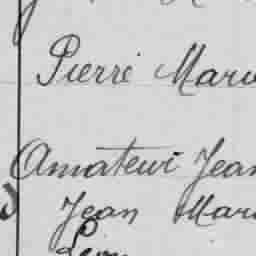 Pierre Mari
Amateur Jean
Jean Mar